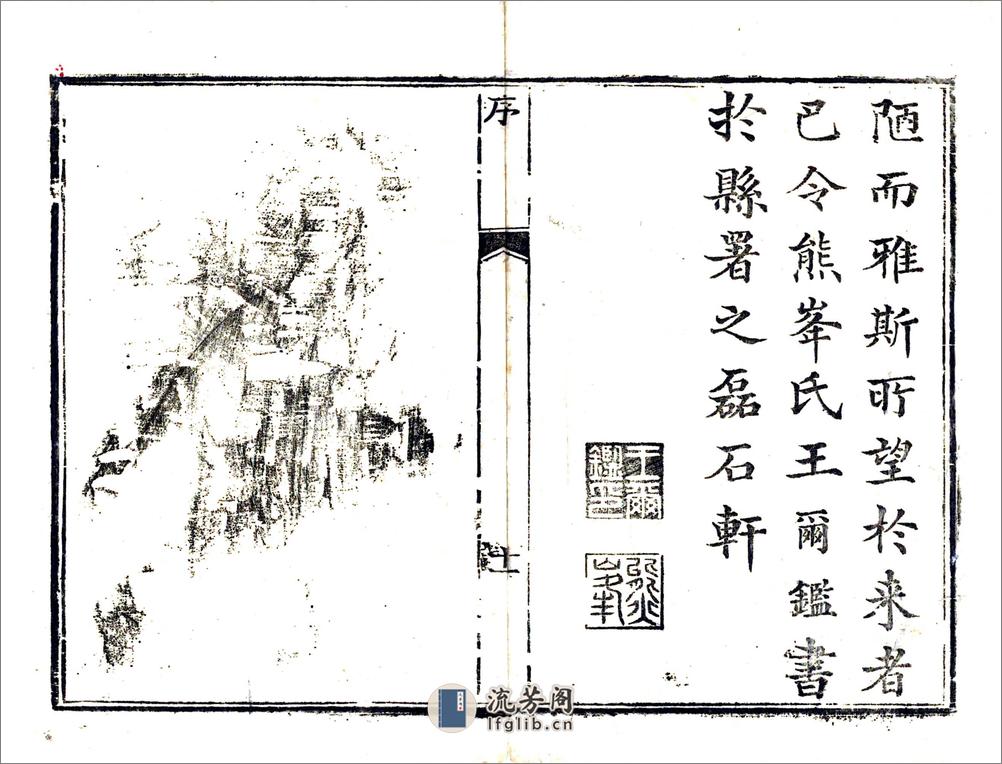 陋而雅斯所望於来者
巳令熊峯氏王爾鑑書
於縣署之磊石軒
王爾
鑑印
熊
峯
序
十
流芳阁
lfglib.cn